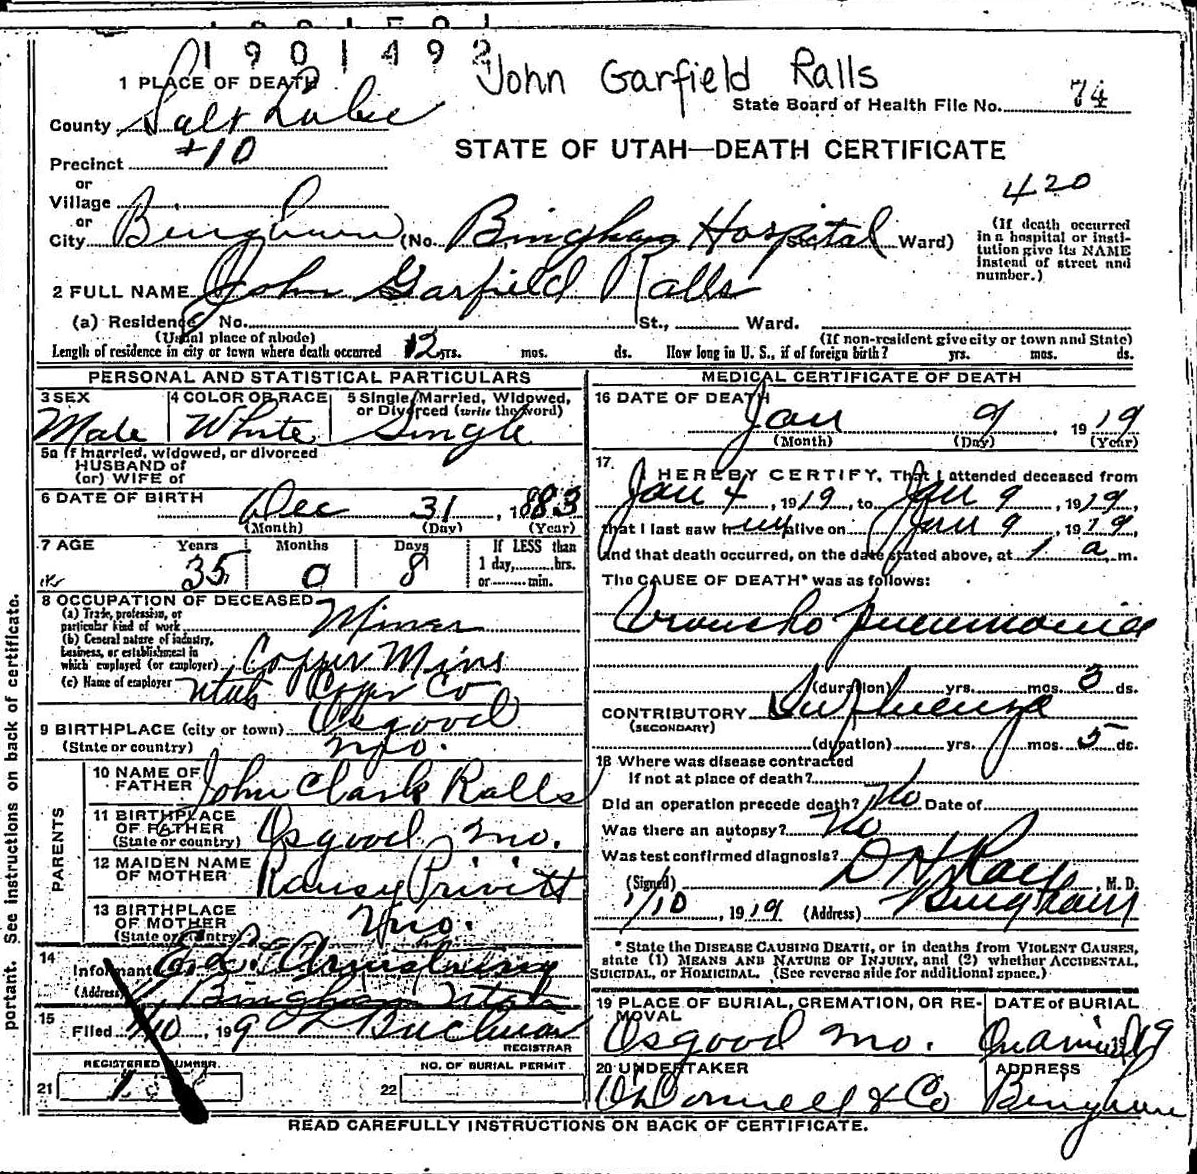 1901492
John Garfield Ralls
1 PLACE OF DEATH
State Board of Health File No. 74
County Salt Lake
STATE OF UTAH—DEATH CERTIFICATE
Precinct #10
or
Village
420
or
City Bingham (No. Bingham Hospital Ward)
(If death occurred in a hospital or institution give its NAME instead of street and number.)
2 FULL NAME John Garfield Ralls
(a) Residence No. St., Ward.
(Usual place of abode) (If non-resident give city or town and State)
Length of residence in city or town where death occurred 12 yrs. mos. ds. How long in U. S., if of foreign birth? yrs. mos. ds.
PERSONAL AND STATISTICAL PARTICULARS
3 SEX Male
4 COLOR OR RACE White
5 Single, Married, Widowed, or Divorced (write the word) Single
5a If married, widowed, or divorced
HUSBAND of
(or) WIFE of
6 DATE OF BIRTH Dec 31, 1883
(Month) (Day) (Year)
7 AGE Years 35 Months 0 Days 8
If LESS than
1 day, hrs.
or min.
8 OCCUPATION OF DECEASED
(a) Trade, profession, or particular kind of work Miner
(b) General nature of industry, business, or establishment in which employed (or employer) Copper Mins
(c) Name of employer Utah Coper Co
9 BIRTHPLACE (city or town) Osgood
(State or country) Mo.
PARENTS
10 NAME OF FATHER John Clark Ralls
11 BIRTHPLACE OF FATHER (State or country) Osgood, Mo.
12 MAIDEN NAME OF MOTHER Privitt
13 BIRTHPLACE OF MOTHER (State or country) Mo.
14 Informant E. L. Armstrong
(Address) Bingham Utah
15 Filed 1/10, 199
REGISTRAR
REGISTERED NUMBER
21
NO. OF BURIAL PERMIT
22
MEDICAL CERTIFICATE OF DEATH
16 DATE OF DEATH
Jan 9, 1919
(Month) (Day) (Year)
17. I HEREBY CERTIFY, That I attended deceased from
Jan 4, 1919, to Jan 9, 1919,
that I last saw him alive on Jan 9, 1919,
and that death occurred, on the date stated above, at 1 a.m.
The CAUSE OF DEATH* was as follows:
Broncho pneumonia
(duration) yrs. mos. 3 ds.
CONTRIBUTORY Influenza
(SECONDARY)
(duration) yrs. mos. 5 ds.
18 Where was disease contracted
If not at place of death?
Did an operation precede death? No Date of
Was there an autopsy? No
Was test confirmed diagnosis?
(Signed) D H Ray, M. D.
1/10, 1919 (Address) Bingham
* State the DISEASE CAUSING DEATH, or in deaths from VIOLENT CAUSES,
state (1) MEANS AND NATURE OF INJURY, and (2) whether ACCIDENTAL,
SUICIDAL, or HOMICIDAL. (See reverse side for additional space.)
19 PLACE OF BURIAL, CREMATION, OR REMOVAL
Osgood Mo.
DATE of BURIAL
19
20 UNDERTAKER
O'Donnell & Co
ADDRESS
Bingham
READ CAREFULLY INSTRUCTIONS ON BACK OF CERTIFICATE.
portant. See instructions on back of certificate.